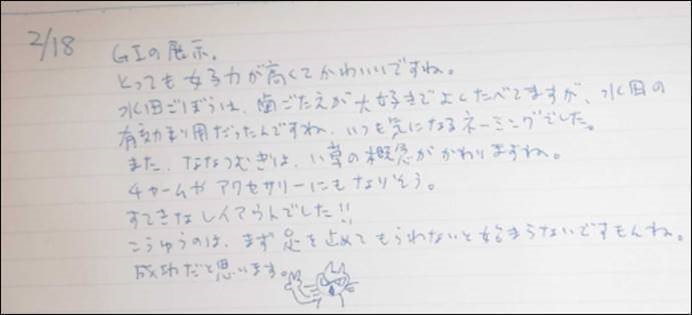 2/18
GIの展示。
とっても女子力が高くてかわいいですね。
水田ごぼうは、歯ごたえが大好きでよくたべてますが、水田の
有効利用だったんですね。いつも気になるネーミングでした。
また、ななつむぎは、い草の概念がかわりますね。
チャームやアクセサリーにもなりそう。
すてきなレイアウトでした!!
こうゆうのは、まず足を止めてもらわないと始まらないですもんね。
成功だと思います。